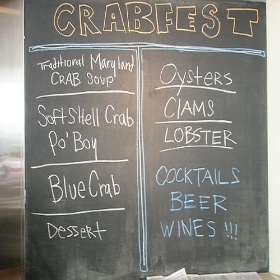 CRABFEST
Traditional Maryland
CRAB Soup
Soft Shell Crab
Po' Boy
Blue Crab
Dessert
Oysters
ClAMS
LOBSTER
COCKTAILS
BEER
WINES !!!